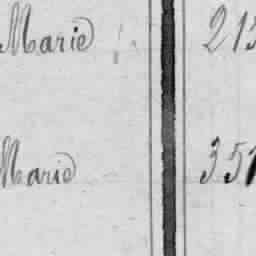 Marie 213
Marie 351